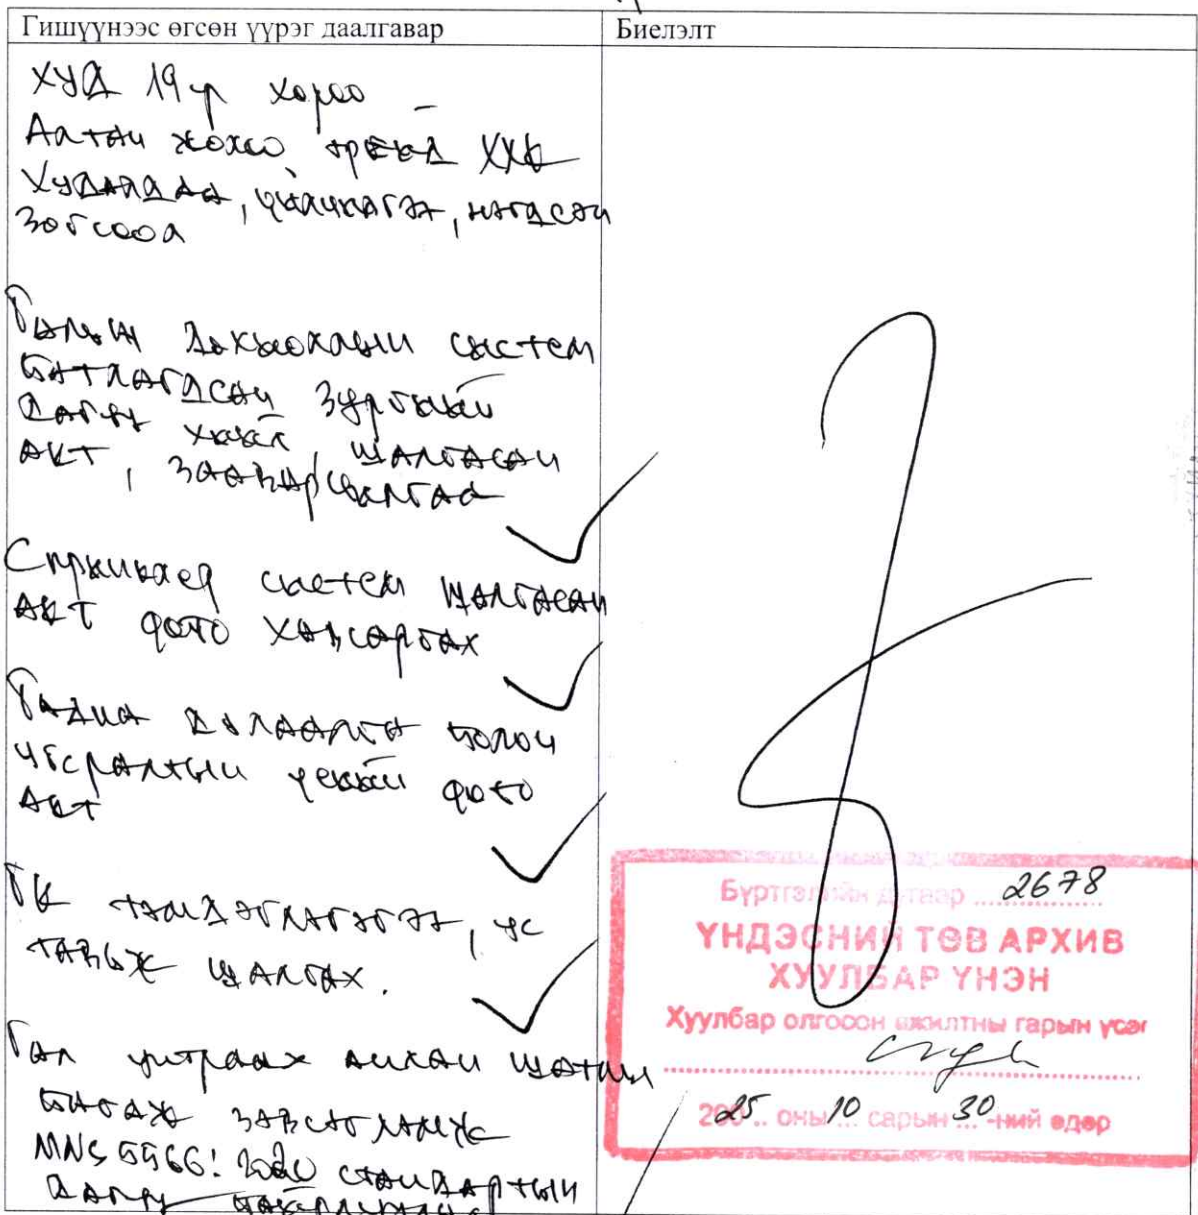 Гишүүнээс өгсөн үүрэг даалгавар
Биелэлт
ХУД 19-р хороо
Алтан жолоо трейд ХХК
Худалдаа, үйлчилгээ, нэгдсэн
зогсоол
Галын дохиоллын систем
Батлагдсан зургийн
дагуу хийх, шалгасан
акт, зааварчилгаа
Спринклер систем шалгасан
акт фото хавсаргах
Гадна дулаалга болон
угсралтын үеийн фото
акт
ГК тэмдэглэгээ, ус
тавьж шалгах.
Гал унтраах анхан шатны
багаж хэрэгсэл
MNS 5566:2020 стандартын
дагуу
Бүртгэлийн дугаар 2678
ҮНДЭСНИЙ ТӨВ АРХИВ
ХУУЛБАР ҮНЭН
Хуулбар олгосон ажилтны гарын үсэг
2025 оны 10 сарын 30-ний өдөр